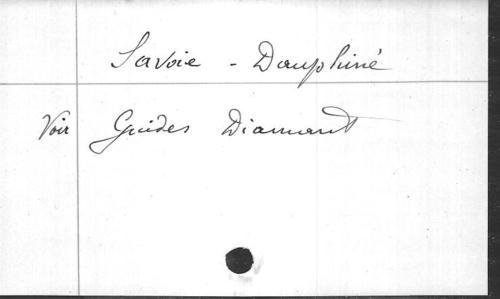 Savoie - Dauphiné
Voir Guides Diamant